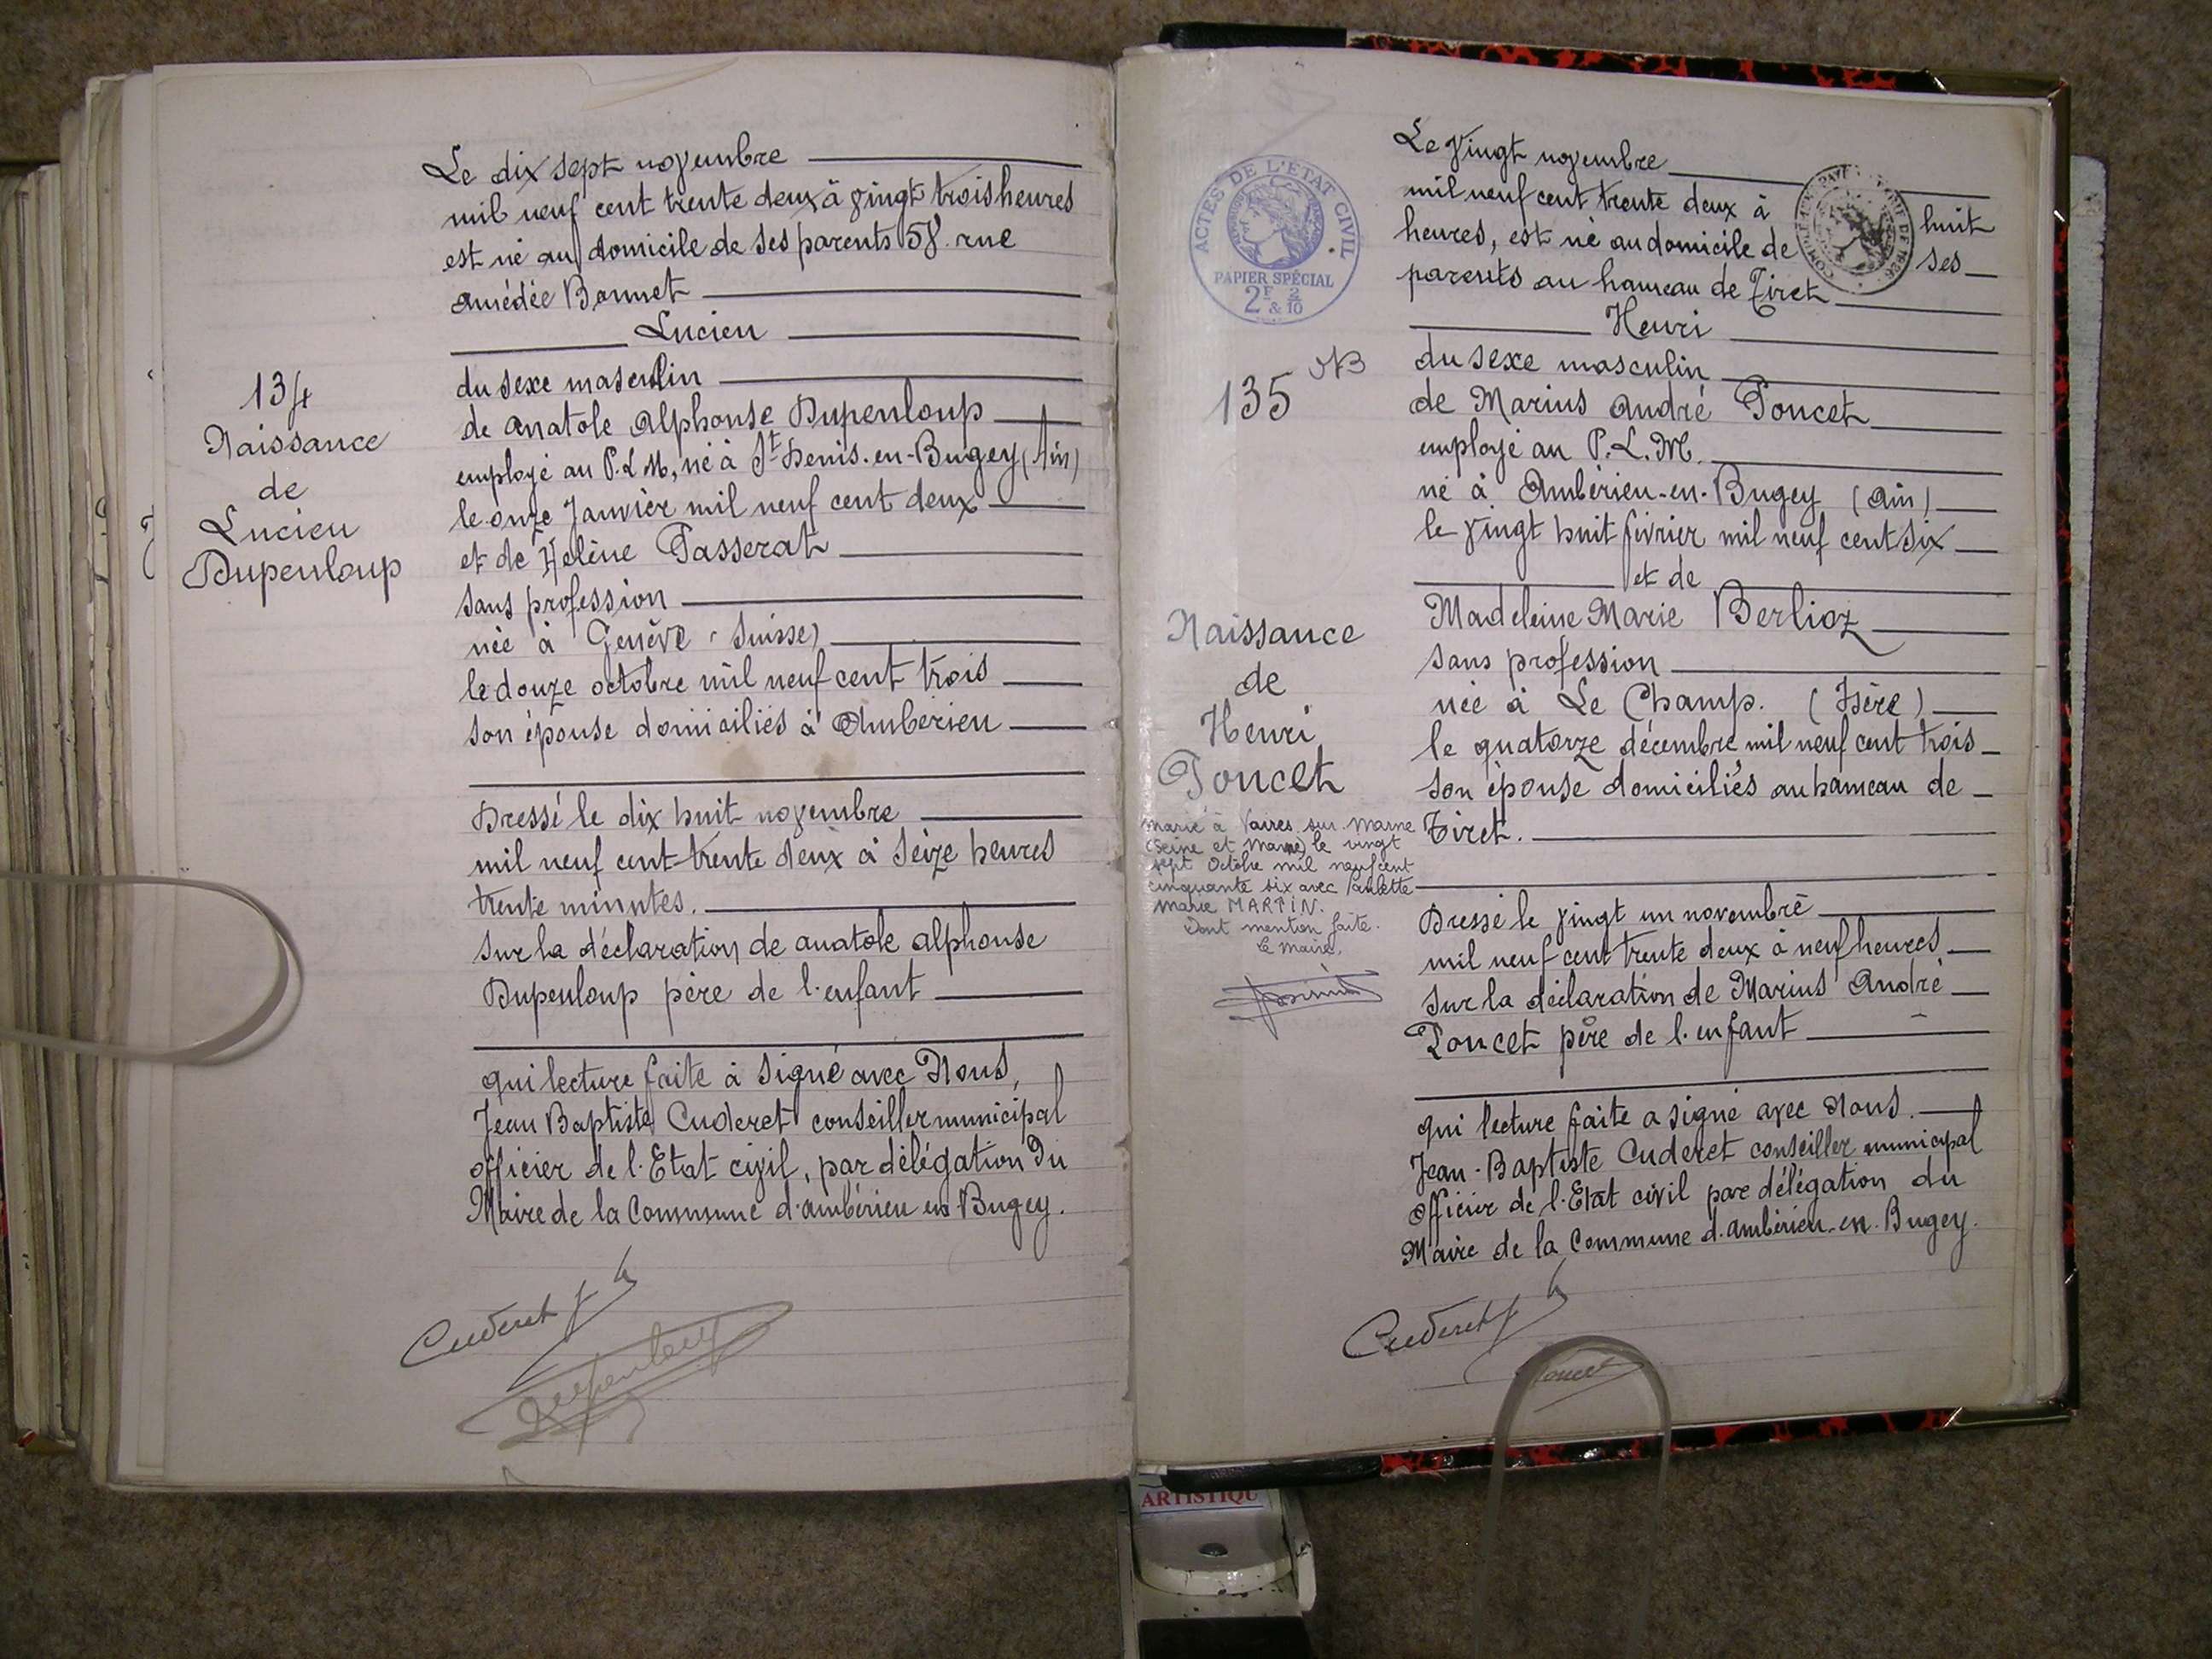 Le dix sept novembre
mil neuf cent trente deux à vingt trois heures
est né au domicile de ses parents 58. rue
Amédée Bonnet
Lucien
du sexe masculin
de Anatole Alphonse Dupenloup
employé au P.L.M, né à St-Denis-en-Bugey (Ain)
le onze Janvier mil neuf cent deux
et de Hélène Passerat
sans profession
née à Genève (Suisse)
le douze octobre mil neuf cent trois
son épouse domiciliés à Ambérieu
Dressé le dix huit novembre
mil neuf cent trente deux à seize heures
trente minutes.
sur la déclaration de anatole alphonse
Dupenloup père de l'enfant
qui lecture faite à signé avec Nous,
Jean Baptiste Cuderet conseiller municipal
officier de l'Etat civil, par délégation du
Maire de la Commune d'ambérieu en Bugey.
134
Naissance
de
Lucien
Dupenloup
Cuderet
Dupenloup
Le Vingt novembre
mil neuf cent trente deux à huit
heures, est né au domicile de ses
parents au hameau de Tiret
Henri
du sexe masculin
de Marius André Poncet
employé au P.L.M.
né à Ambérieu-en-Bugey (Ain)
le vingt huit février mil neuf cent six
et de
Madeleine Marie Berlioz
sans profession
née à Le Champ. (Isère)
le quatorze décembre mil neuf cent trois
son épouse domiciliés au hameau de
Tiret.
Dressé le vingt un novembre
mil neuf cent trente deux à neuf heures
sur la déclaration de Marius André
Poncet père de l'enfant
qui lecture faite a signé avec Nous.
Jean-Baptiste Cuderet conseiller municipal
officier de l'Etat civil par délégation du
Maire de la Commune d'ambérieu-en-Bugey.
ACTES DE L'ETAT CIVIL
PAPIER SPÉCIAL
2F & 2/10
135
Naissance
de
Henri
Poncet
marié à Vaires sur Marne
(Seine et Marne) le vingt
sept Octobre mil neuf cent
cinquante six avec Paulette
Marie MARTIN.
Dont mention faite.
Le Maire,
Cuderet
Poncet
ARTISTIQU